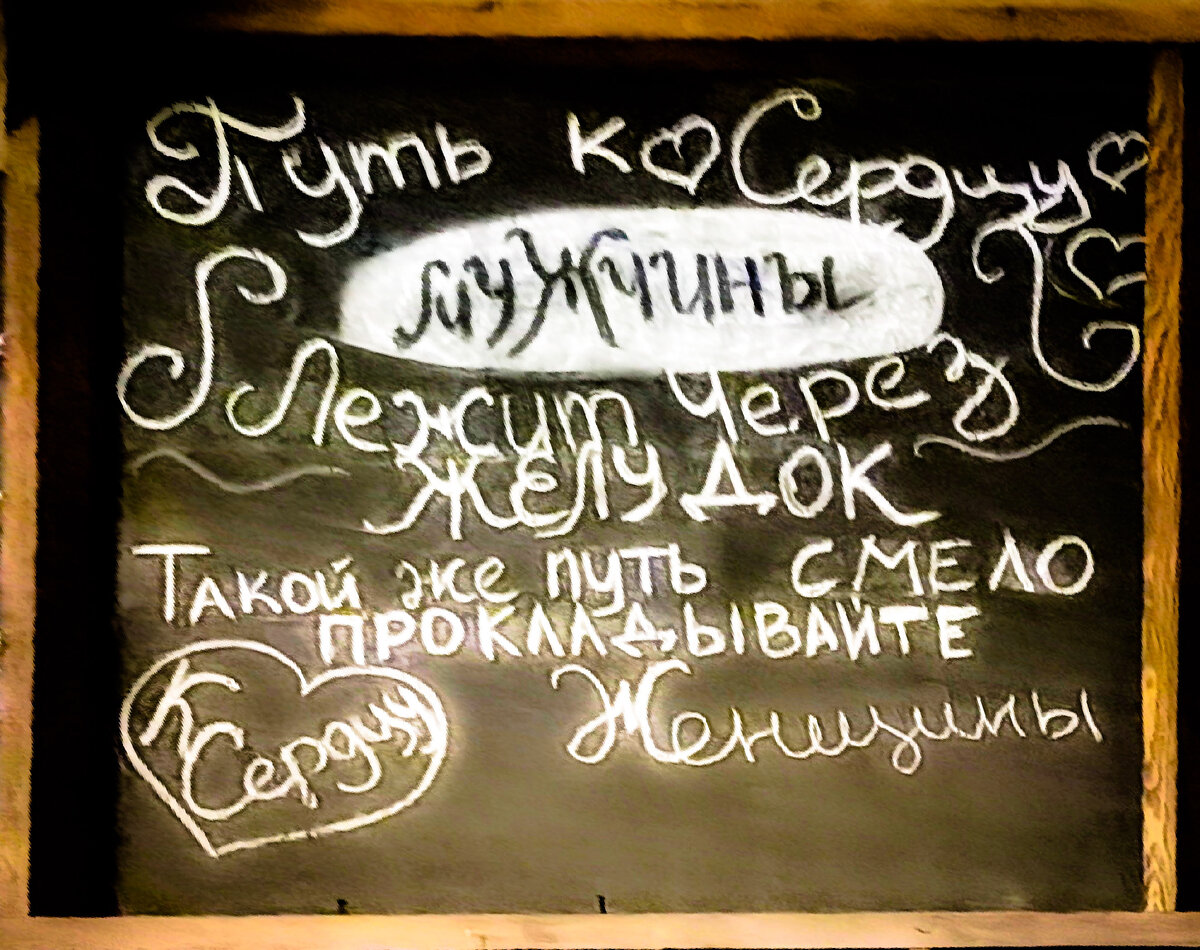 Путь к Сердцу
мужчины
Лежит Через
ЖЕЛУДОК
ТАКОЙ же путь СМЕЛО
ПРОКЛАДЫВАЙТЕ
К Сердцу Женщины